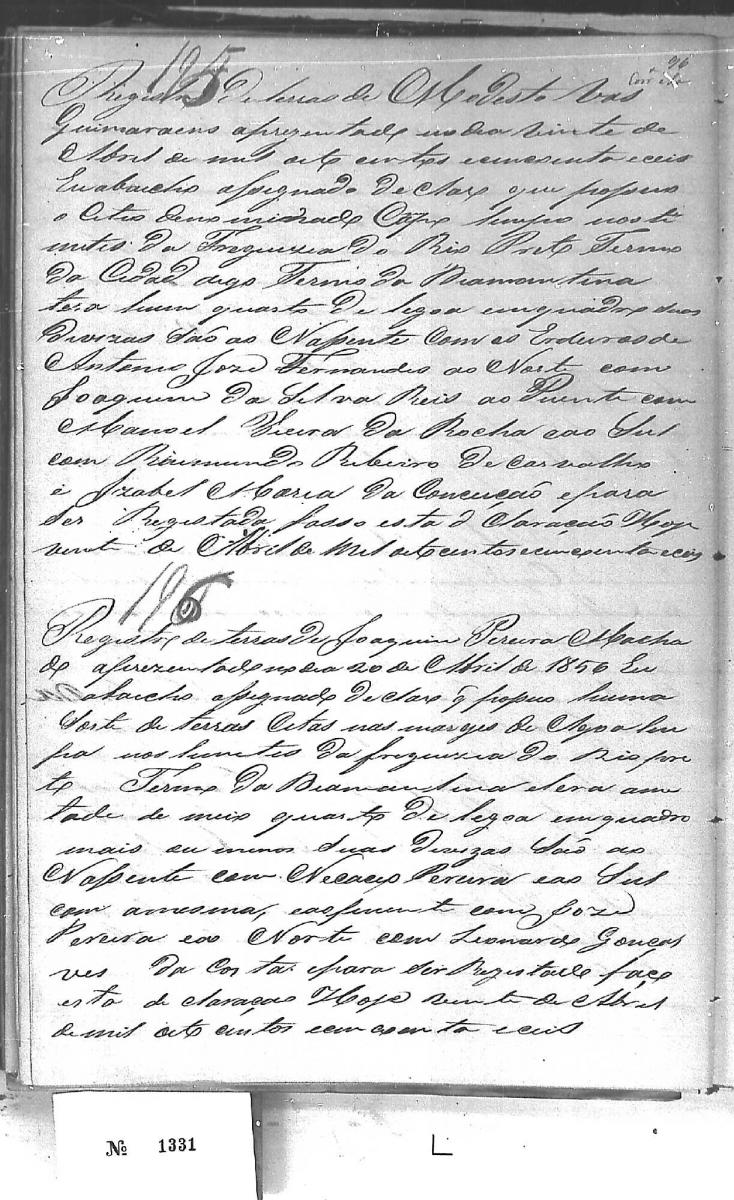 96
195
Registro de terras de Modesto Vas
Guimaraens aprezentado no dia vinte de
Abril de mil oito centos e cincoenta e ceis
Eu abaicho assignado declaro que possuo
o Citio denominado Capo limpo nos li
mites da Freguezia do Rio Preto Termo
da Cidade digo Termo da Diamantina
tera hum quarto de legoa em quadro suas
Divizas São ao Nassente Com os Erdeiros de
Antonio Joze Fernandes ao Norte com
Joaquim da Silva Reis ao Puente com
Manoel Vieira da Rocha e ao Sul
com Raimundo Ribeiro de Carvalho
e Izabel Maria da Conceição e para
Ser Registada fasso esta de Claração Hoje
vente de Abril de Mil oito centos e cincoenta e ceis
196
Registro de terras de Joaquim Pereira Macha
do aprezentado no dia 20 de Abril de 1856 Eu
abaicho assignado declaro q possuo huma
Sorte de terras Citas nas marges de Agoa lim
pa nos limetes da freguezia do Rio pre
to Termo da Diamantina e tera a me
tade de meio quarto de legoa em quadro
mais ou menos Suas divizas São ao
Nassente com Pereira e ao Sul
com a mesma, e ao puente com Joze
Pereira e ao Norte com Leonardo Goncal
ves da Costa e para Ser Registado faço
esta de claração Hoje vente de Abril
de mil oito centos e cincoenta e ceis
Nº 1331